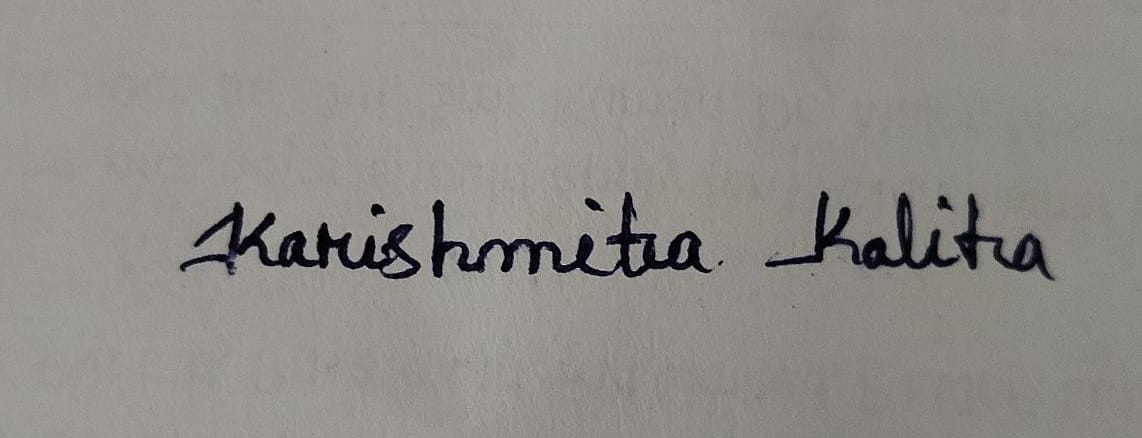 Karishmita Kalita